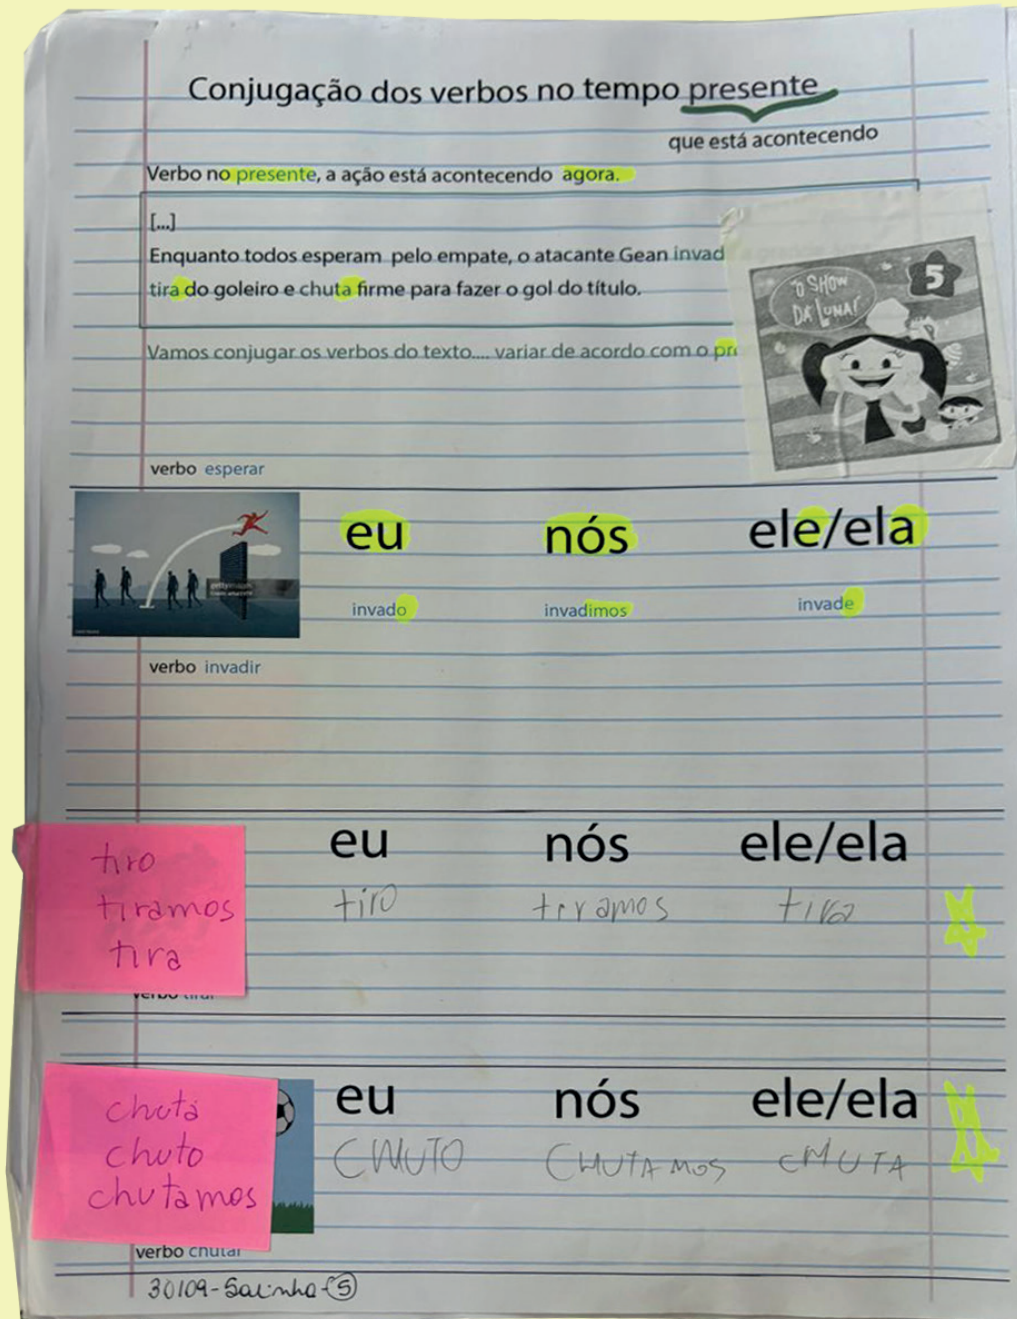 Conjugação dos verbos no tempo presente
que está acontecendo
Verbo no presente, a ação está acontecendo agora.
[...]
Enquanto todos esperam pelo empate, o atacante Gean invad
tira do goleiro e chuta firme para fazer o gol do título.
Vamos conjugar os verbos do texto.... variar de acordo com o pr
"O SHOW
DA LUNA!
5
verbo esperar
eu nós ele/ela
invado invadimos invade
verbo invadir
eu nós ele/ela
tiro
tiramos
tira
tiro tiramos tira
verbo tirar
eu nós ele/ela
chuta
chuto
chutamos
CHUTO CHUTAMOS CHUTA
verbo chutar
30/09-Salinha-5